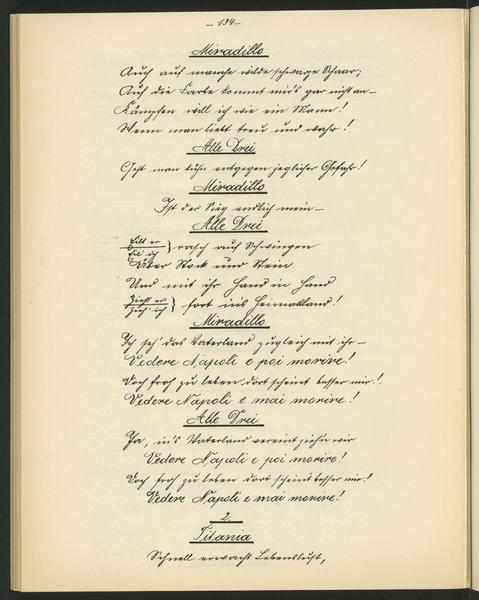 — 134 —
Miradillo
Auch auf manche wilde schwarze Schaar;
Auf die Farbe kommt mir's gar nicht an —
Kämpfen will ich wie ein Mann!
Wenn man liebt treu und wahr!
Alle Drei
Geht man kühn entgegen jeglicher Gefahr!
Miradillo
Ist der Sieg endlich mein —
Alle Drei
Eilt er } rasch auf Schwingen
Eil' ich
Über Stock und Stein
Und mit ihr Hand in Hand
Zieht er } fort in's Heimatland!
Zieh' ich
Miradillo
Ich seh' das Vaterland zugleich mit ihr —
Vedere Napoli e poi morire!
Doch froh zu leben dort scheint besser mir! —
Vedere Napoli e mai morire!
Alle Drei
Ja, in's Vaterland vereint ziehn wir
Vedere Napoli e poi morire!
Doch froh zu leben dort scheint besser mir!
Vedere Napoli e mai morire!
2.
Titania
Schnell erwacht Lebenslust,